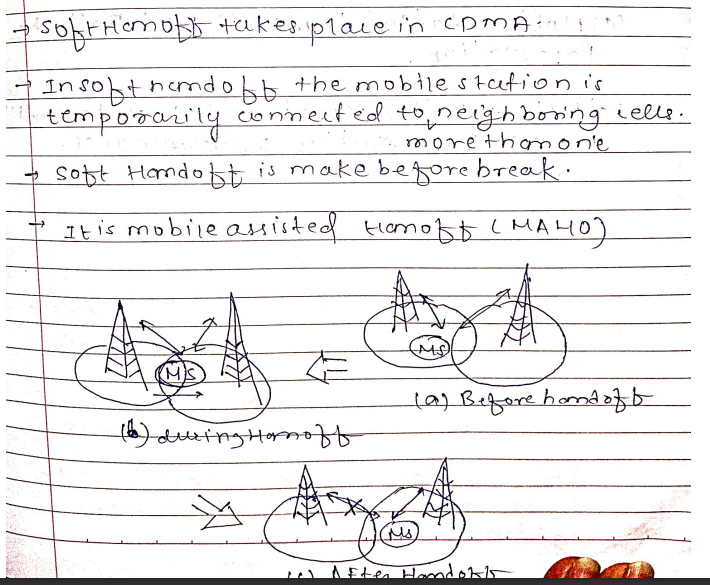 → Soft Hamoff takes place in CDMA.
→ In soft handoff the mobile station is
temporarily connected to neighboring cells.
more than one
→ Soft Handoff is make before break.
→ It is mobile assisted Hanoff (MAHO)
MS
(a) Before handoff
MS
(b) during Hanoff
MS
(c) After Handoff